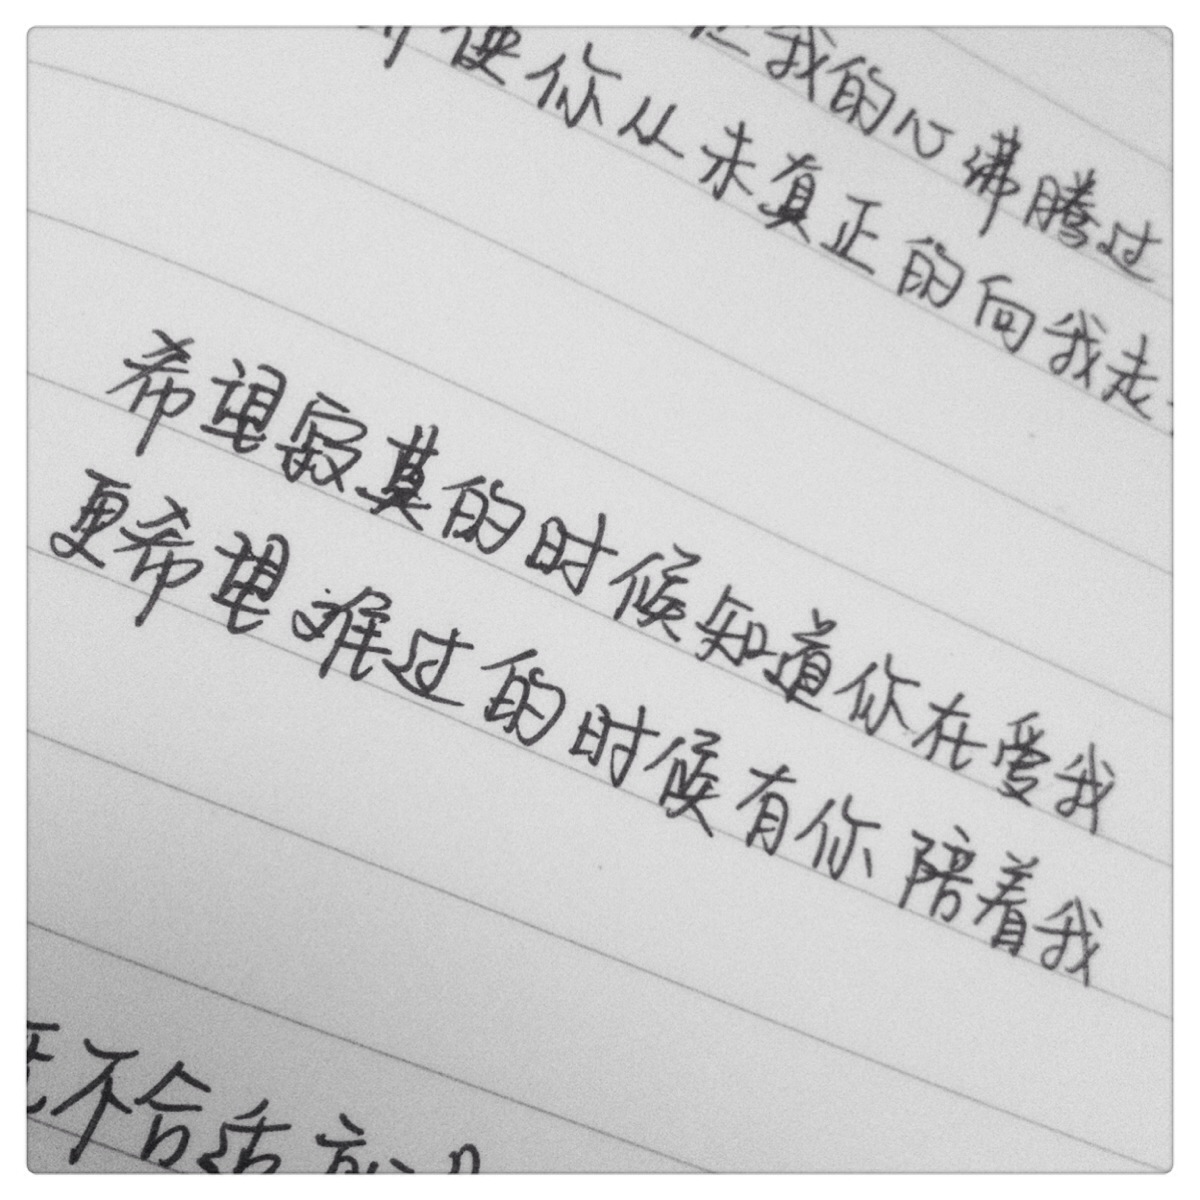 我的心沸腾过
便你从未真正的向我走
希望寂寞的时候知道你在爱我
更希望难过的时候有你陪着我
不合适